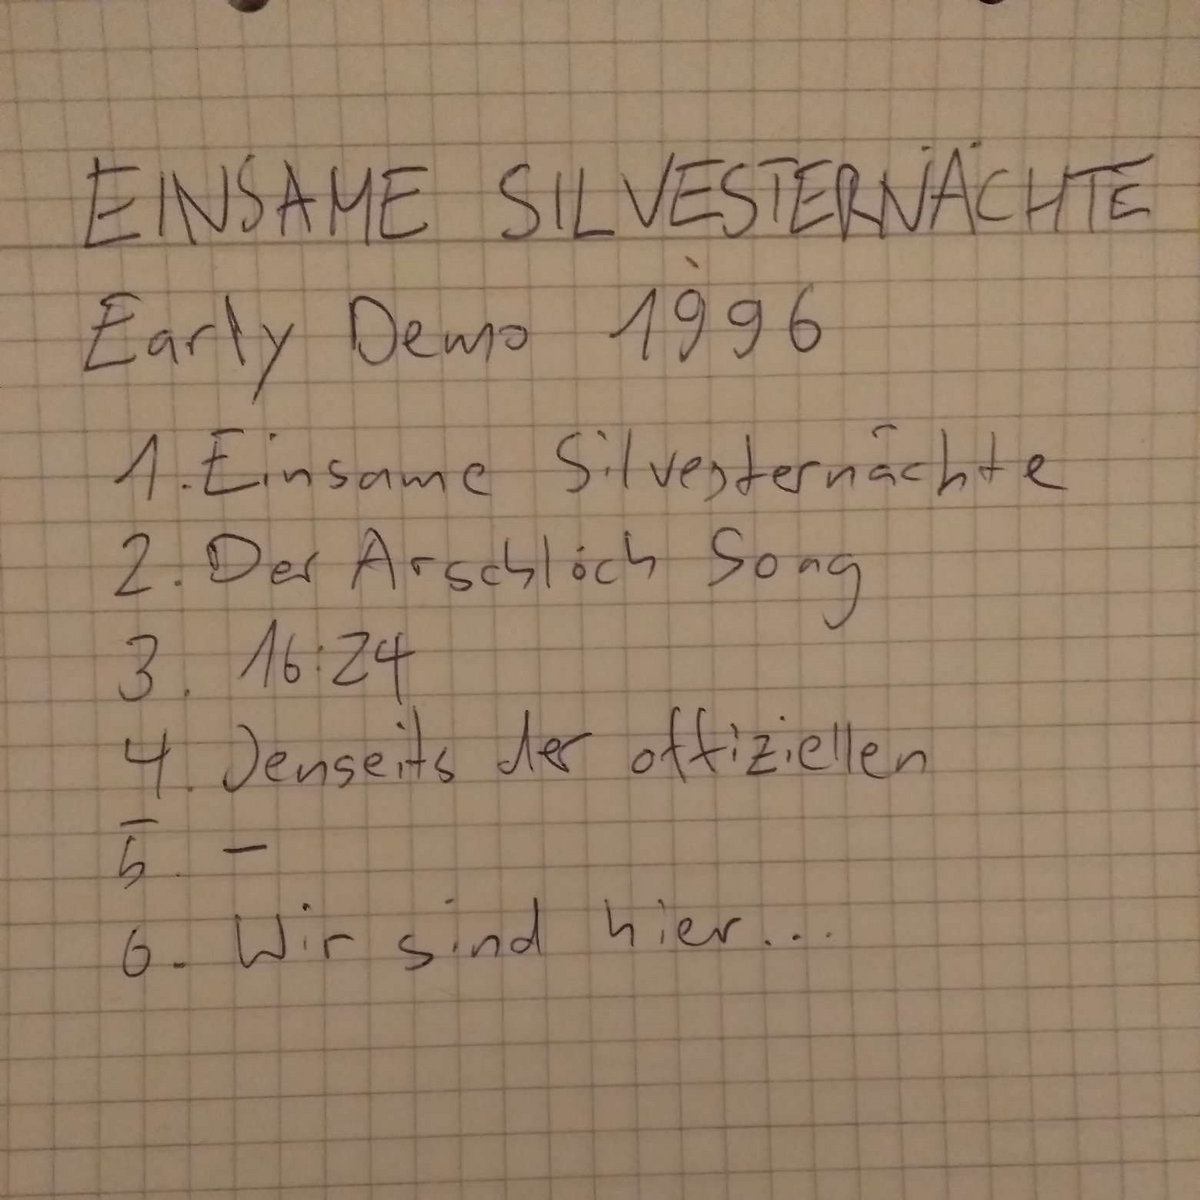 EINSAME SILVESTERNÄCHTE
Early Demo 1996
1. Einsame Silvesternächte
2. Der Arschloch Song
3. 16:24
4. Jenseits der offiziellen
5. –
6. Wir sind hier...